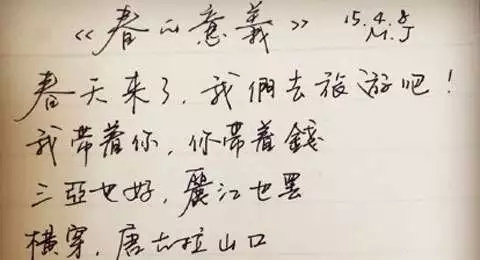 《春的意義》 15.4.8
M.J
春天来了，我們去旅游吧！
我帶着你，你帶着錢
三亞也好，麗江也罢
橫穿，唐古拉山口